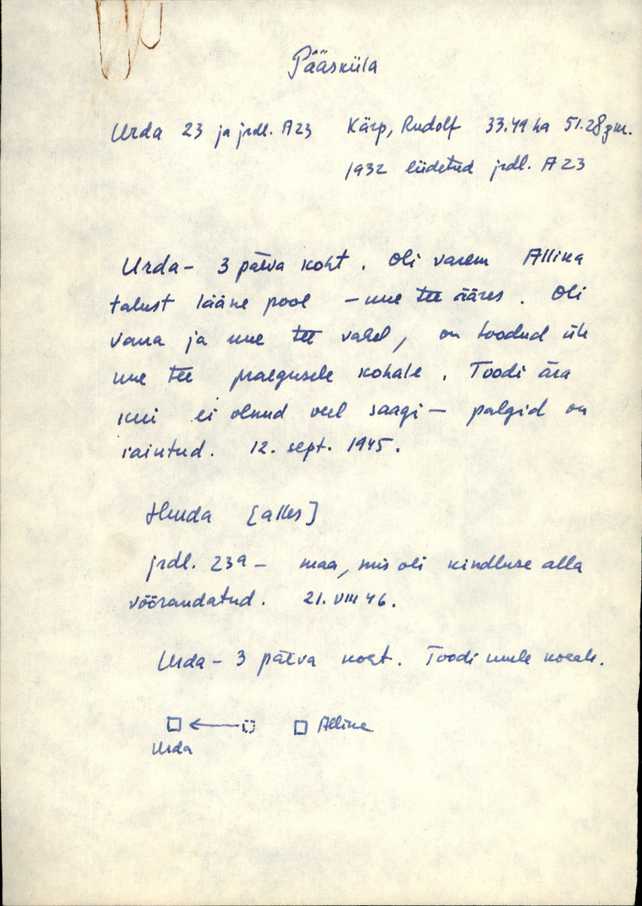 Pääsküla
Urda 23 ja jrdl. A23 Kärp, Rudolf 33.49 ha 51.28
1932 liidetud jrdl. A23
Urda - 3 päeva koht. Oli varem Allika
talust lääne pool - uue tee ääres. Oli
vana ja uue tee vahel, on toodud üle
uue tee praegusele kohale. Toodi ära
kui ei olnud veel saagi - palgid on
raiutud. 12. sept. 1945.
[alles]
jrdl. 23a - maa, mis oli kindluse alla
võõrandatud. 21. VIII 46.
Urda - 3 päeva koht. Toodi uuele kohale.
Allika
Urda